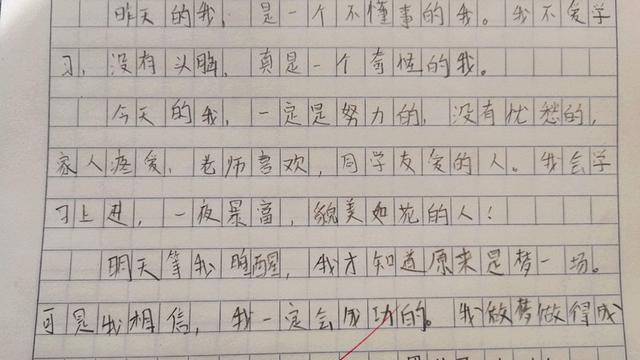 昨天的我，是一个不懂事的我。我不爱学
习，没有头脑，真是一个奇怪的我。
今天的我，一定是努力的，没有忧愁的，
家人疼爱，老师喜欢，同学友爱的人。我会学
习上进，一夜暴富，貌美如花的人！
明天等我睡醒，我才知道原来是梦一场。
可是我相信，我一定会成功的。我做梦做得成